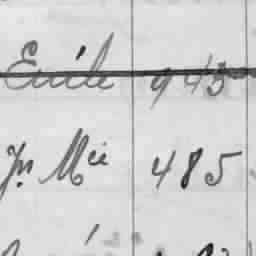 Emile 943
Jn Mie 485